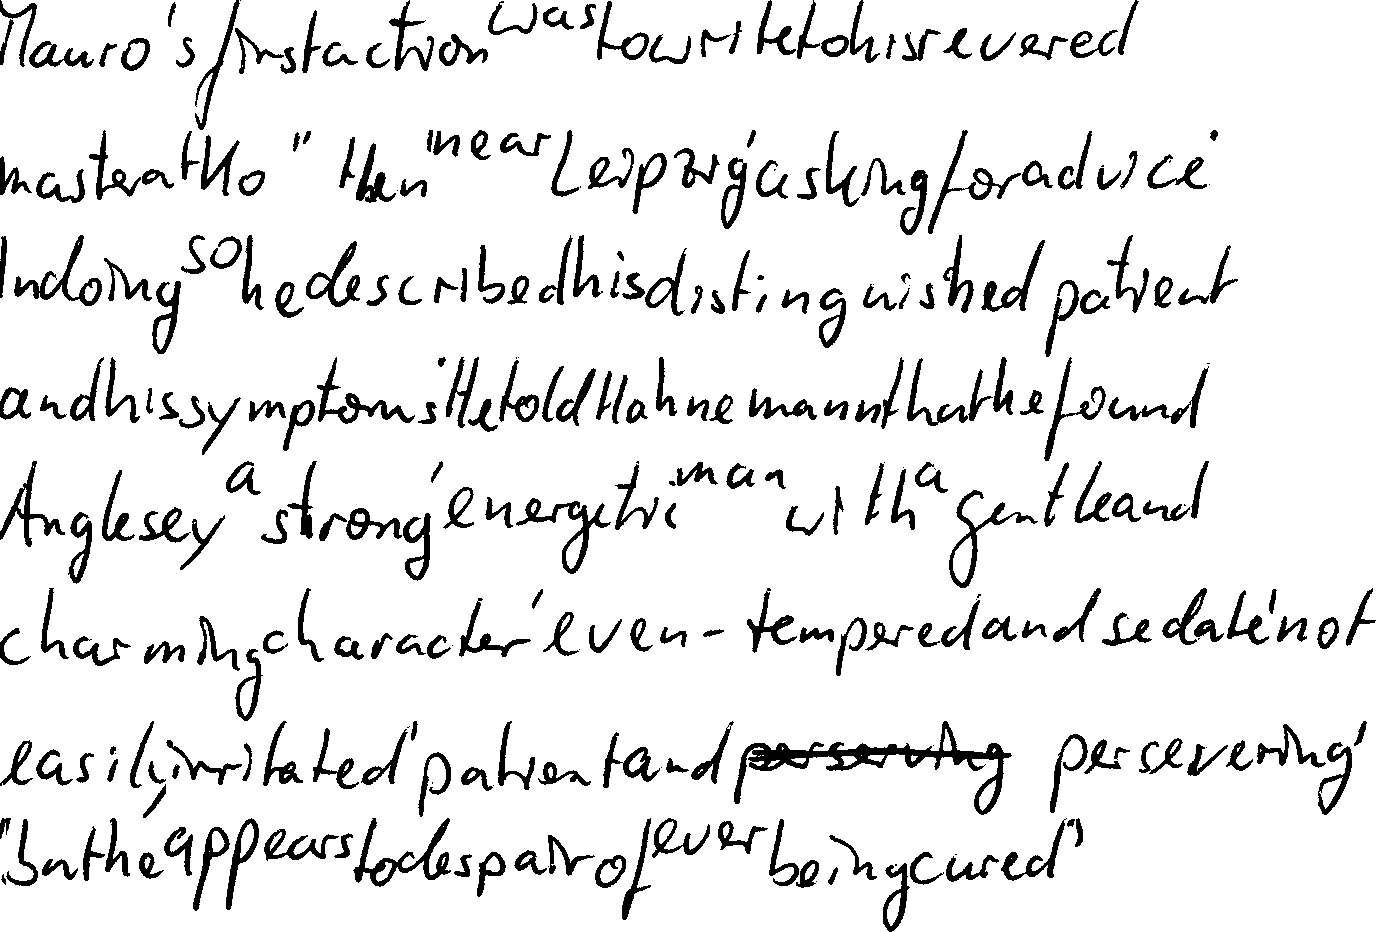 Mauro's first action was to write to his revered
master at Ko " then " near Leipzig, asking for advice.
In doing so he described his distinguished patient
and his symptoms. He told Hahnemann that he found
Anglesey a strong, energetic man with a gentle and
charming character, even-tempered and sedate, not
easily irritated, patient and persevering,
"but he appears to despair of ever being cured"